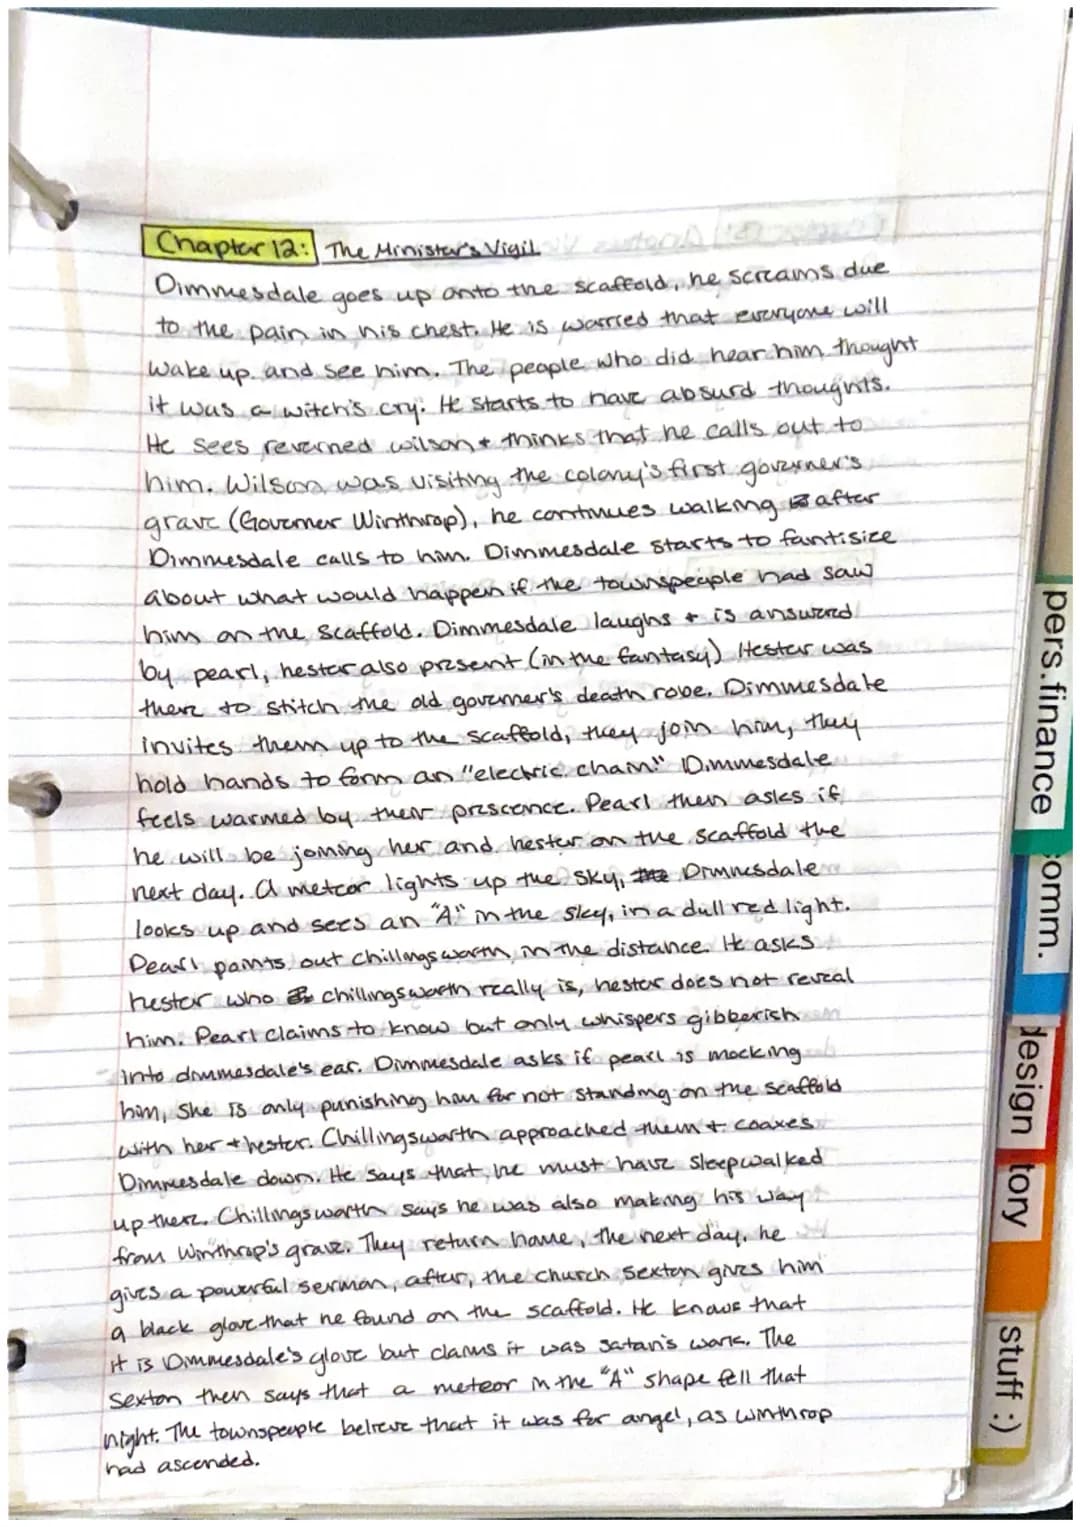 Chapter 12: The Minister's Vigil
Dimmesdale goes up onto the scaffold, he screams due
to the pain in his chest. He is worried that everyone will
wake up and see him. The people who did hear him thought
it was a witch's cry. He starts to have absurd thoughts.
He sees reverned wilson + thinks that he calls out to
him. Wilson was visiting the colony's first governer's
grave (Governer Winthrop), he continues walking after
Dimmesdale calls to him. Dimmesdale starts to fantisize
about what would happen if the townspeople had saw
him on the scaffold. Dimmesdale laughs + is answered
by pearl, hester also present (in the fantasy) Hester was
there to stitch the old governer's death robe. Dimmesdale
invites them up to the scaffold, they join him, they
hold hands to form an "electric chain." Dimmesdale
feels warmed by their prescence. Pearl then asks if
he will be joining her and hester on the scaffold the
next day. A meteor lights up the sky, Dimmesdale
looks up and sees an "A" in the sky, in a dull red light.
Pearl points out chillingsworth in the distance. He asks
hester who chillingsworth really is, hester does not reveal
him. Pearl claims to know but only whispers gibberish
into dimmesdale's ear. Dimmesdale asks if pearl is mocking
him, She is only punishing him for not standing on the scaffold
with her + hester. Chillingsworth approached them + coaxes
Dimmesdale down. He says that he must have sleepwalked
up there. Chillingsworth says he was also making his way
from Winthrop's grave. They return home, the next day, he
gives a powerful sermon, after, the church sexton gives him
a black glove that he found on the scaffold. He knows that
it is Dimmesdale's glove but claims it was satan's work. The
sexton then says that a meteor in the "A" shape fell that
night. The townspeople believe that it was for angel, as winthrop
had ascended.
pers.finance
comm.
design
tory
stuff :)